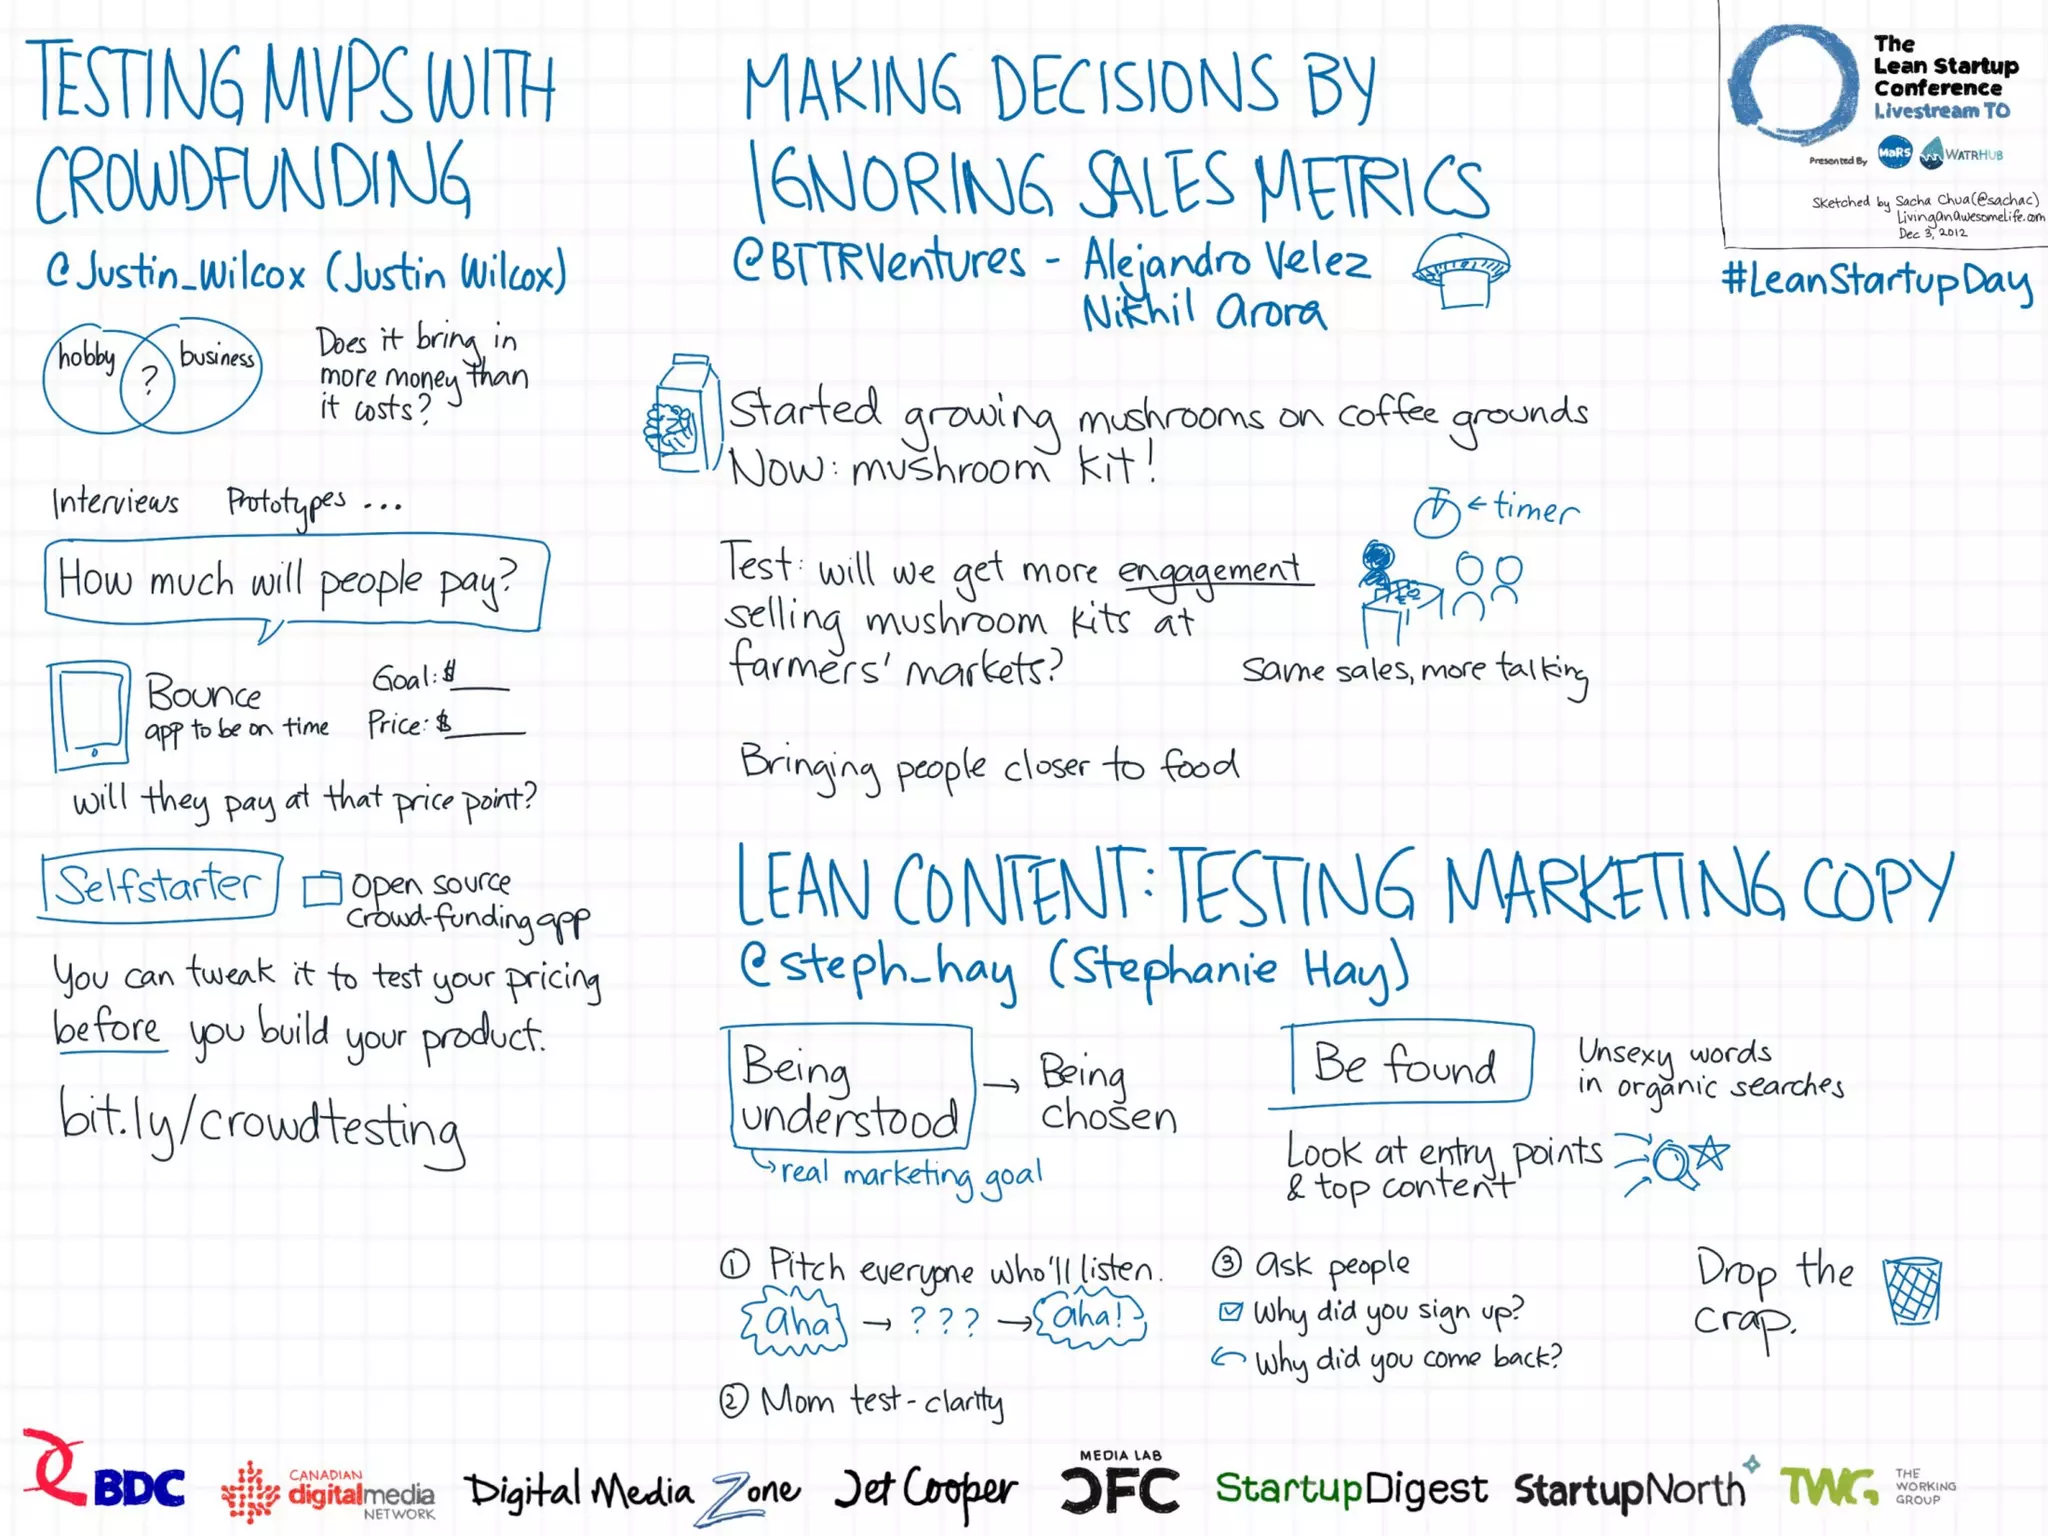 TESTING MVPS WITH
CROWDFUNDING
@Justin_Wilcox (Justin Wilcox)
hobby
?
business
Does it bring in
more money than
it costs?
Interviews Prototypes ...
How much will people pay?
Bounce
app to be on time
Goal: $____
Price: $____
will they pay at that price point?
Selfstarter
open source
crowd-funding app
You can tweak it to test your pricing
before you build your product.
bit.ly/crowdtesting
MAKING DECISIONS BY
IGNORING SALES METRICS
@BTTRVentures - Alejandro Velez
Nikhil Arora
Started growing mushrooms on coffee grounds
Now: mushroom kit!
Test: will we get more engagement
selling mushroom kits at
farmers' markets?
← timer
same sales, more talking
Bringing people closer to food
LEAN CONTENT: TESTING MARKETING COPY
@steph_hay (Stephanie Hay)
Being
understood
→ Being
chosen
real marketing goal
Be found
Unsexy words
in organic searches
Look at entry points
& top content
① Pitch everyone who'll listen.
aha → ? ? ? → aha!
② Mom test - clarity
③ Ask people
Why did you sign up?
Why did you come back?
Drop the
crap.
The
Lean Startup
Conference
Livestream TO
Presented By MaRS WATRHUB
Sketched by Sacha Chua (@sachac)
LivingAnAwesomeLife.com
Dec 3, 2012
#LeanStartupDay
BDC
CANADIAN
digitalmedia
NETWORK
Digital Media Zone
Jet Cooper
MEDIA LAB
CFC
StartupDigest
StartupNorth
TWG
THE
WORKING
GROUP